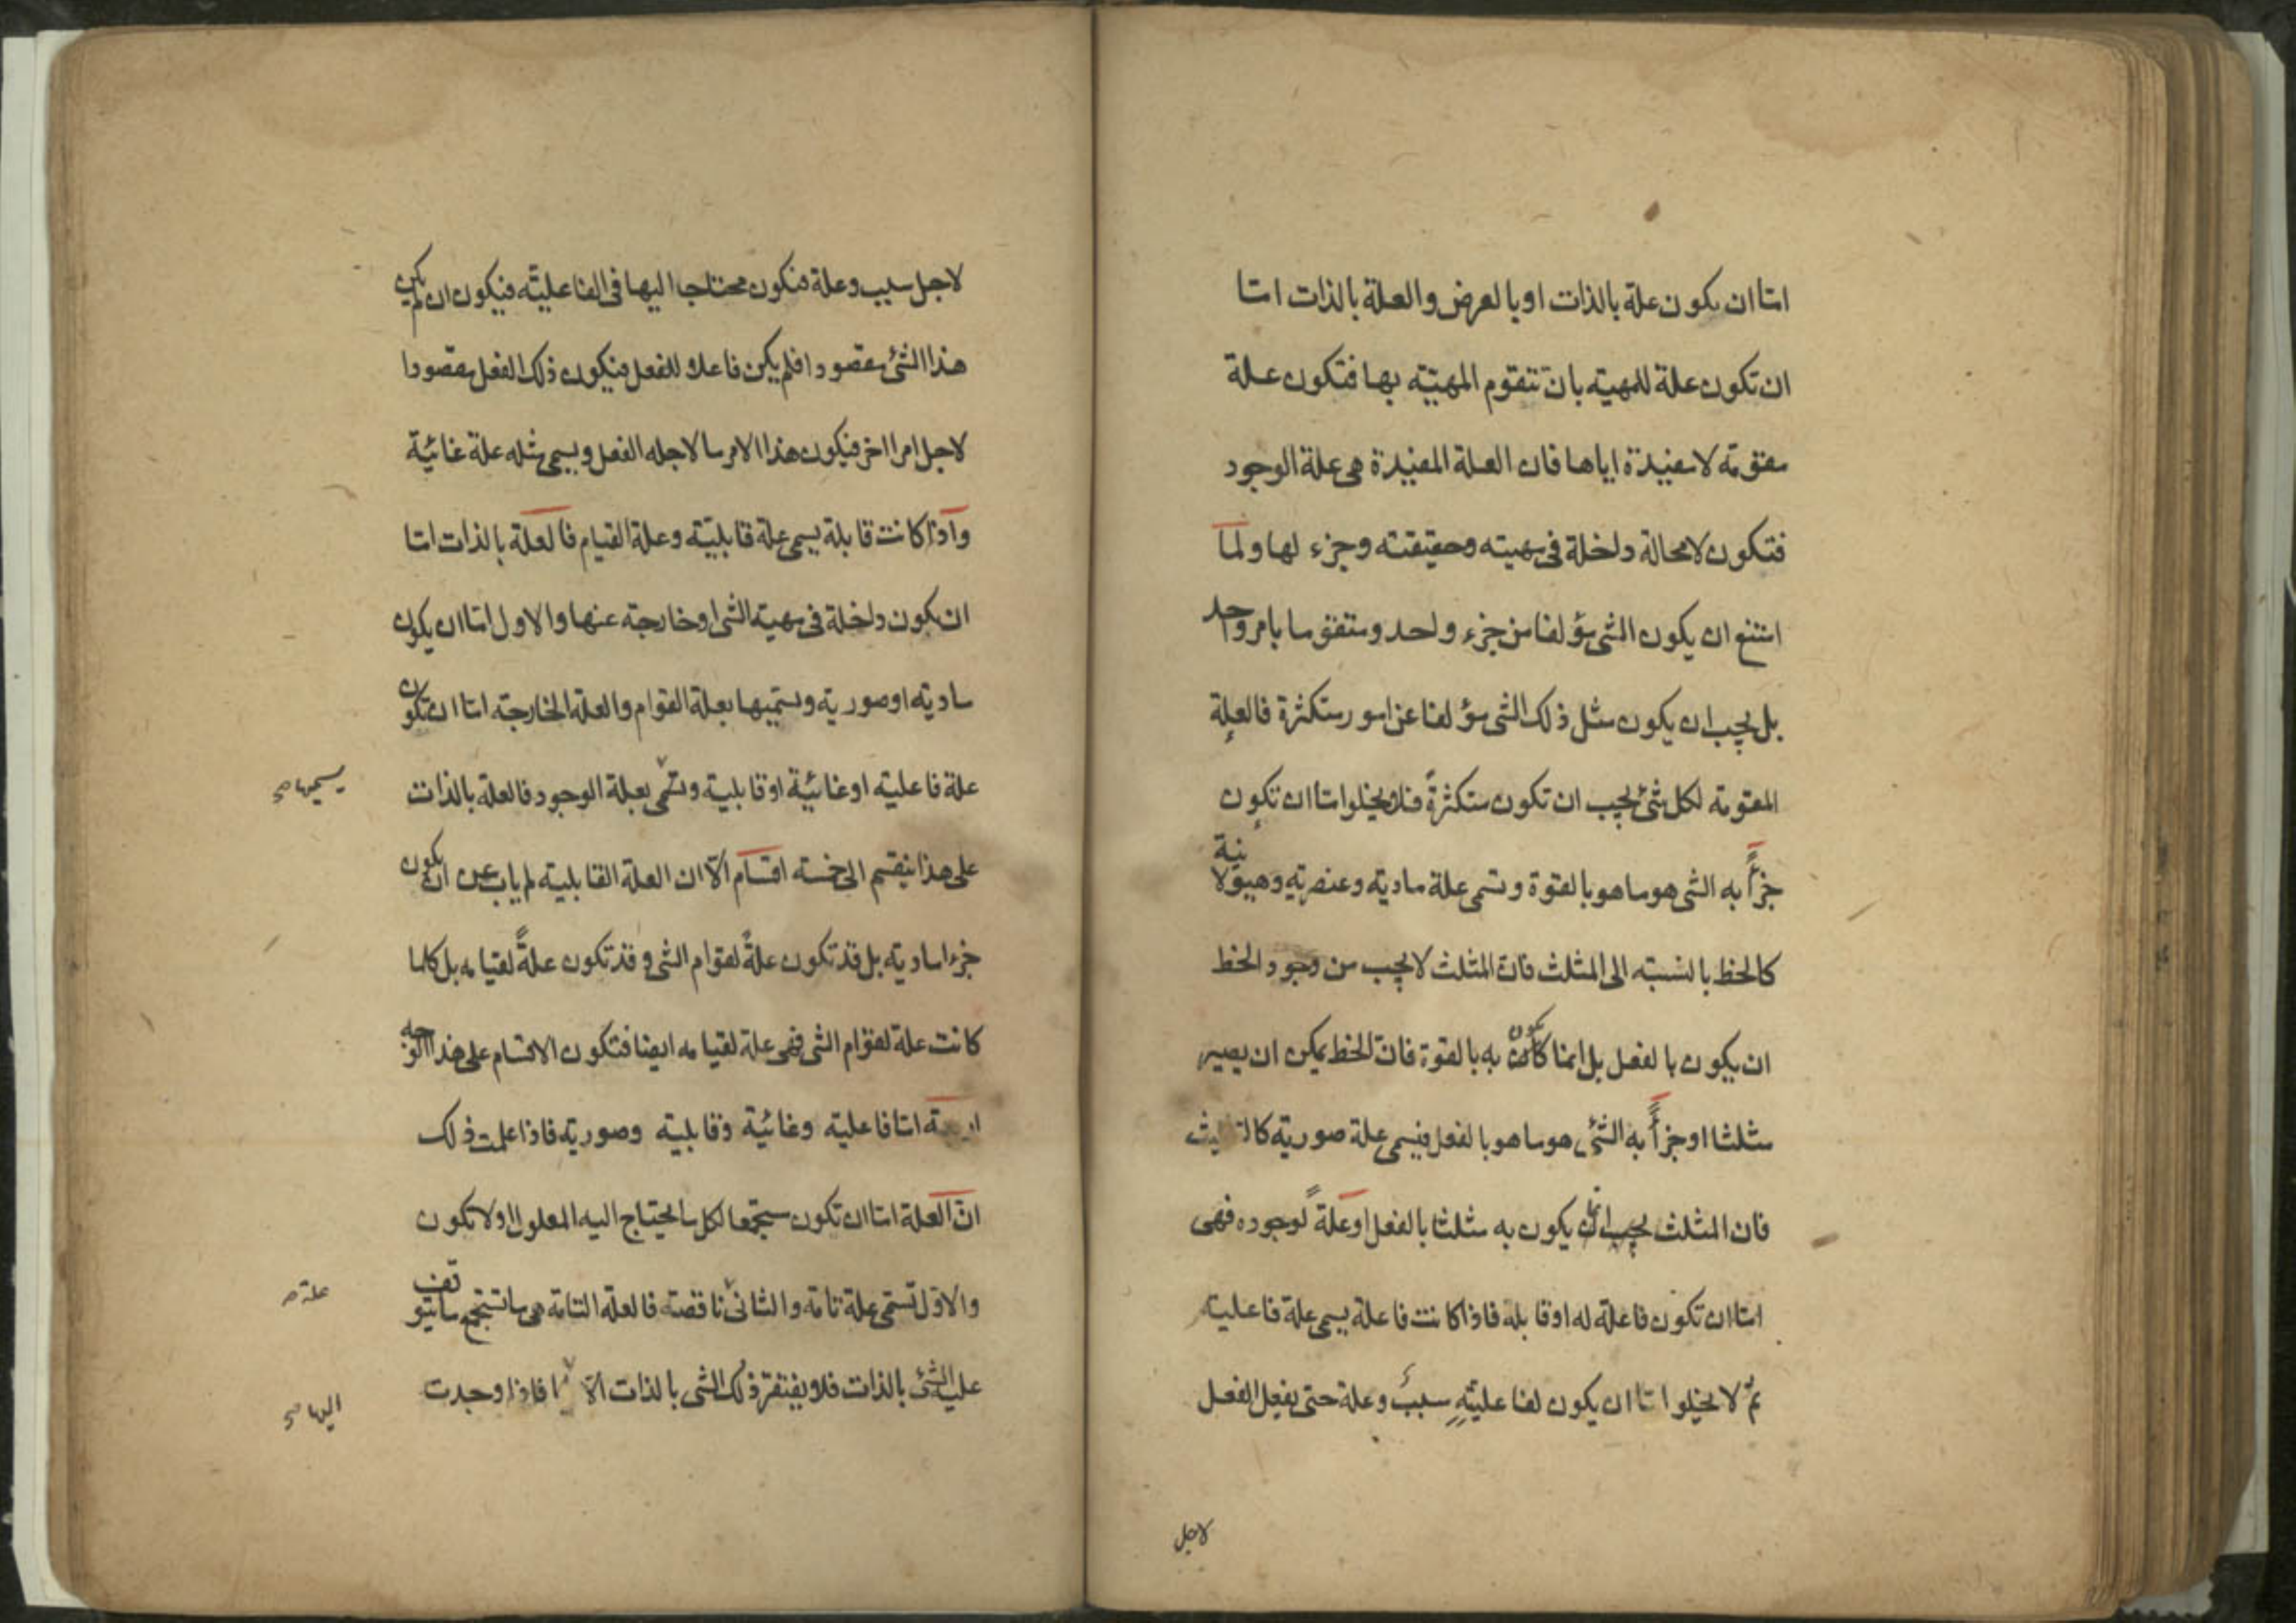 اما ان يكون علة بالذات او بالعرض والعلة بالذات اما
ان تكون علة للمهية بان تتقوم المهية بها فتكون علة
مقومة لا مفيدة اياها فان العلة المفيدة هى علة الوجود
فتكون لا محالة داخلة فى مهيته وحقيقته وجزء لها ولما
امتنع ان يكون الشى مؤلفا من جزء واحد ومتقوما بامر واحد
بل يجب ان يكون مثل ذلك الشى مؤلفا عن امور متكثرة فالعلة
المقومة لكل شئ يجب ان تكون متكثرةً فلا يخلوا اما ان تكون
جزأً به الشى هو ما هو بالقوة وتسمى علة مادية وعنصرية وهيولانية
كالخط بالنسبة الى المثلث فانّ المثلث لا يجب من وجود الخط
ان يكون بالفعل بل انما يكون به بالقوة فانّ الخط يمكن ان يصير
مثلثا او جزأً به الشئ هو ما هو بالفعل فيسمى علة صورية كالتثليث
فان المثلث يجب ان يكون به مثلثا بالفعل او علةً لوجوده فهى
اما ان تكون فاعلة له او قابلة فاذا كانت فاعلة يسمى علة فاعلية
ثم لا يخلوا اما ان يكون لفاعليّته سببٌ وعلة حتى يفعل الفعل
لاجل
لاجل سبب وعلة فتكون محتاجا اليها فى الفاعليّة فيكون ان لم يكن
هذا الشئ مقصودا فلم يكن فاعلا للفعل فيكون ذلك الفعل مقصودا
لاجل امر اخر فيكون هذا الامر ما لاجله الفعل ويسمى مثله علة غائية
واذا كانت قابلة يسمى علة قابليّة وعلة القيام فالعلة بالذات اما
ان يكون داخلة فى مهية الشى او خارجة عنها والاول اما ان يكون
مادية او صورية ويسميها بعلة القوام والعلة الخارجة اما ان تكون
علة فاعلية او غائية او قابلية وتسمى بعلة الوجود فالعلة بالذات
يسميها صح
على هذا ينقسم الى خمسة اقسام الّا ان العلة القابلية لم ياب عن ان يكون
جزءا مادية بل قد تكون علةً لقوام الشى وقد تكون علةً لقيامه بل كلما
كانت علة لقوام الشى فهى علة لقيامه ايضا فتكون الاقسام على هذا الوجه
اربعة اما فاعلية وغائية وقابلية وصورية فاذا علمت ذلك
انّ العلة اما ان تكون مستجمعا لكل ما يحتاج اليه المعلول او لا تكون
والاوّل تسمى علة تامة والثانى ناقصة فالعلة التامة هى ما تستجمع ما يتوقف
علة صح
عليه الشئ بالذات فلا يفتقر ذلك الشى بالذات الّا فاذا وجدت
اليها صح